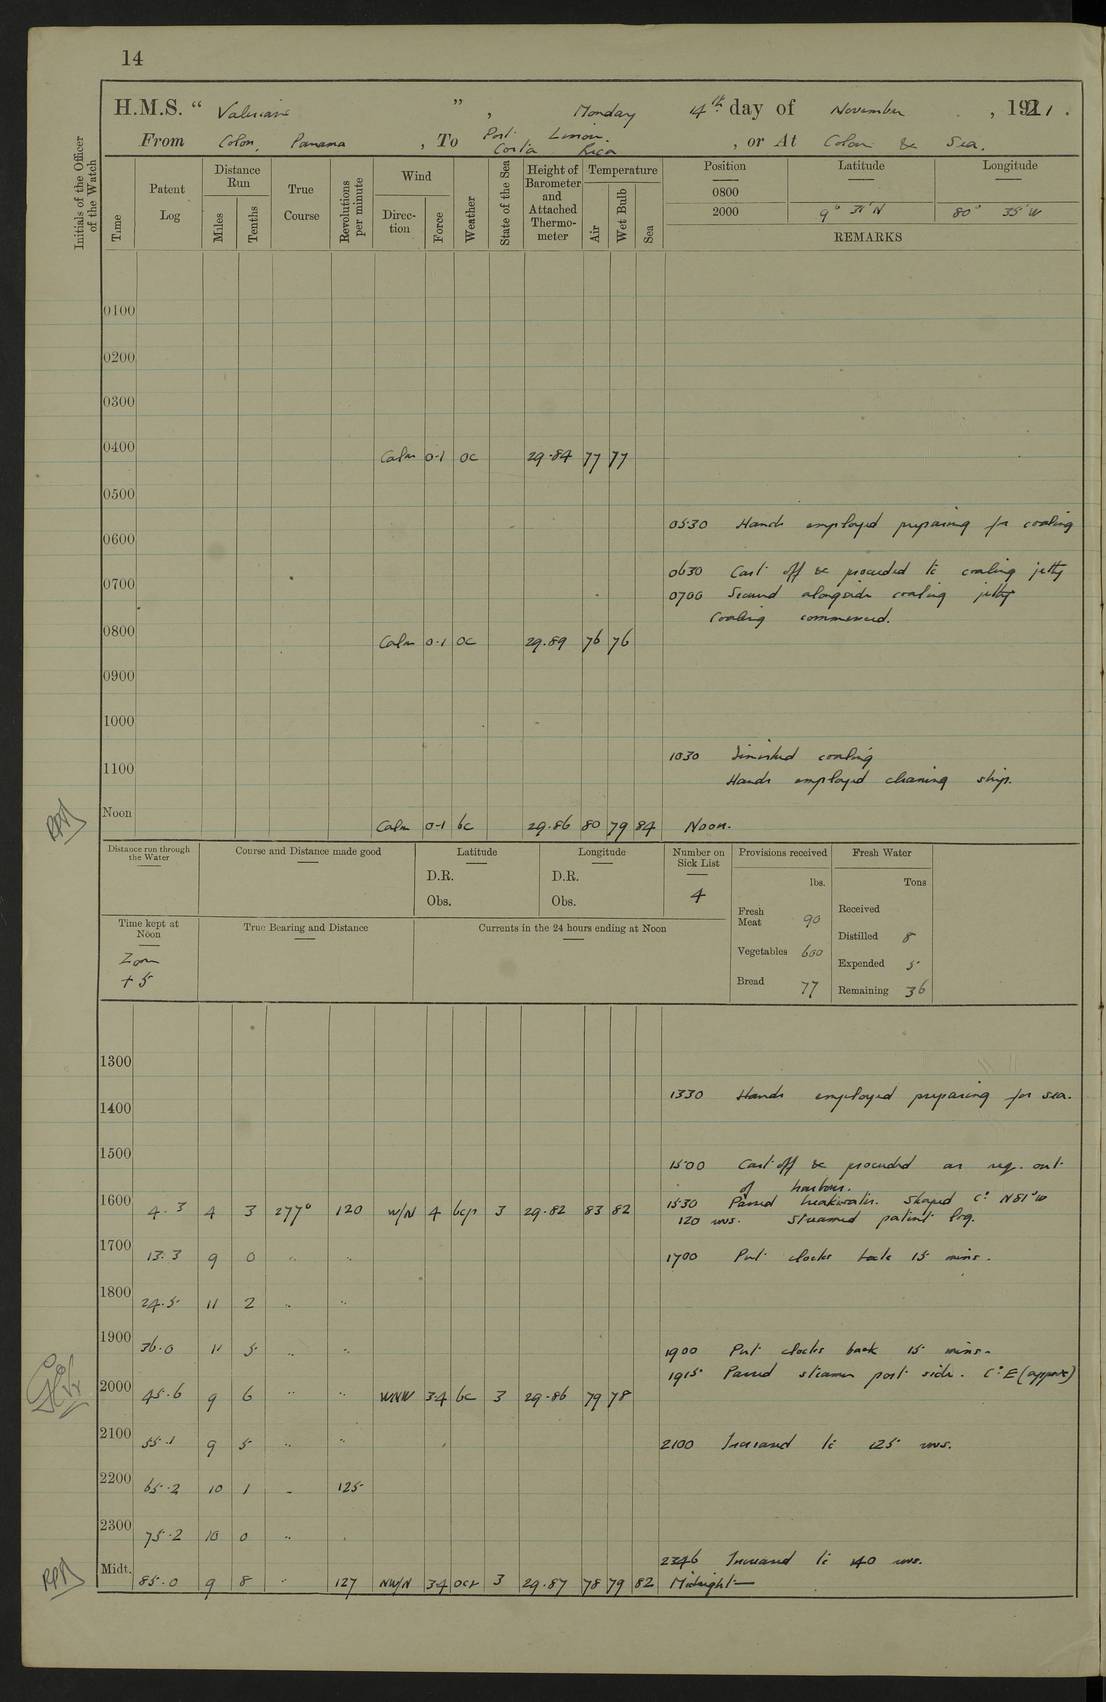 14
H.M.S. “ Valerian ” , Monday 14th day of November , 1921 .
From Colon, Panama , To Port Limon. Costa Rica , or At Colon & Sea.
Initials of the Officer of the Watch
Time
Patent Log
Distance Run
Miles
Tenths
True Course
Revolutions per minute
Wind
Direction
Force
Weather
State of the Sea
Height of Barometer and Attached Thermometer
Temperature
Air
Wet Bulb
Sea
Position Latitude Longitude
0800
2000 9° 31' N 80° 35' W
REMARKS
0100
0200
0300
0400 Calm 0-1 oc 29.84 77 77
0500
0530 Hands employed preparing for coaling
0600
0630 Cast off & proceeded to coaling jetty
0700
0700 Secured alongside coaling jetty
Coaling commenced.
0800 Calm 0-1 oc 29.89 76 76
0900
1000
1030 Finished coaling
1100
Hands employed cleaning ship.
Noon Calm 0-1 bc 29.86 80 79 84 Noon.
Distance run through the Water
Course and Distance made good
Latitude
D.R.
Obs.
Longitude
D.R.
Obs.
Number on Sick List
4
Provisions received
lbs.
Fresh Meat 90
Vegetables 600
Bread 77
Fresh Water
Tons
Received
Distilled 8
Expended 5
Remaining 36
Time kept at Noon
Zone
+ 5
True Bearing and Distance
Currents in the 24 hours ending at Noon
1300
1330 Hands employed preparing for sea.
1400
1500
1500 Cast off & proceeded as req. out
of harbour.
1600 4.3 4 3 277° 120 W/N 4 bcp 3 29.82 83 82
1530 Passed breakwater. Shaped Co N81°W
120 revs. Streamed patent log.
1700 13.3 9 0 .. ..
1700 Put clocks back 15 mins.
1800 24.5 11 2 .. ..
1900 36.0 11 5 .. ..
1900 Put clocks back 15 mins.
1915 Passed steamer port side. Co E (approx)
2000 45.6 9 6 .. .. WNW 3-4 bc 3 29.86 79 78
2100 55.1 9 5 .. ..
2100 Increased to 125 revs.
2200 65.2 10 1 .. 125
2300 75.2 10 0 ..
2346 Increased to 140 revs.
Midt. 85.0 9 8 .. 127 NW/N 3-4 ocr 3 29.87 78 79 82 Midnight